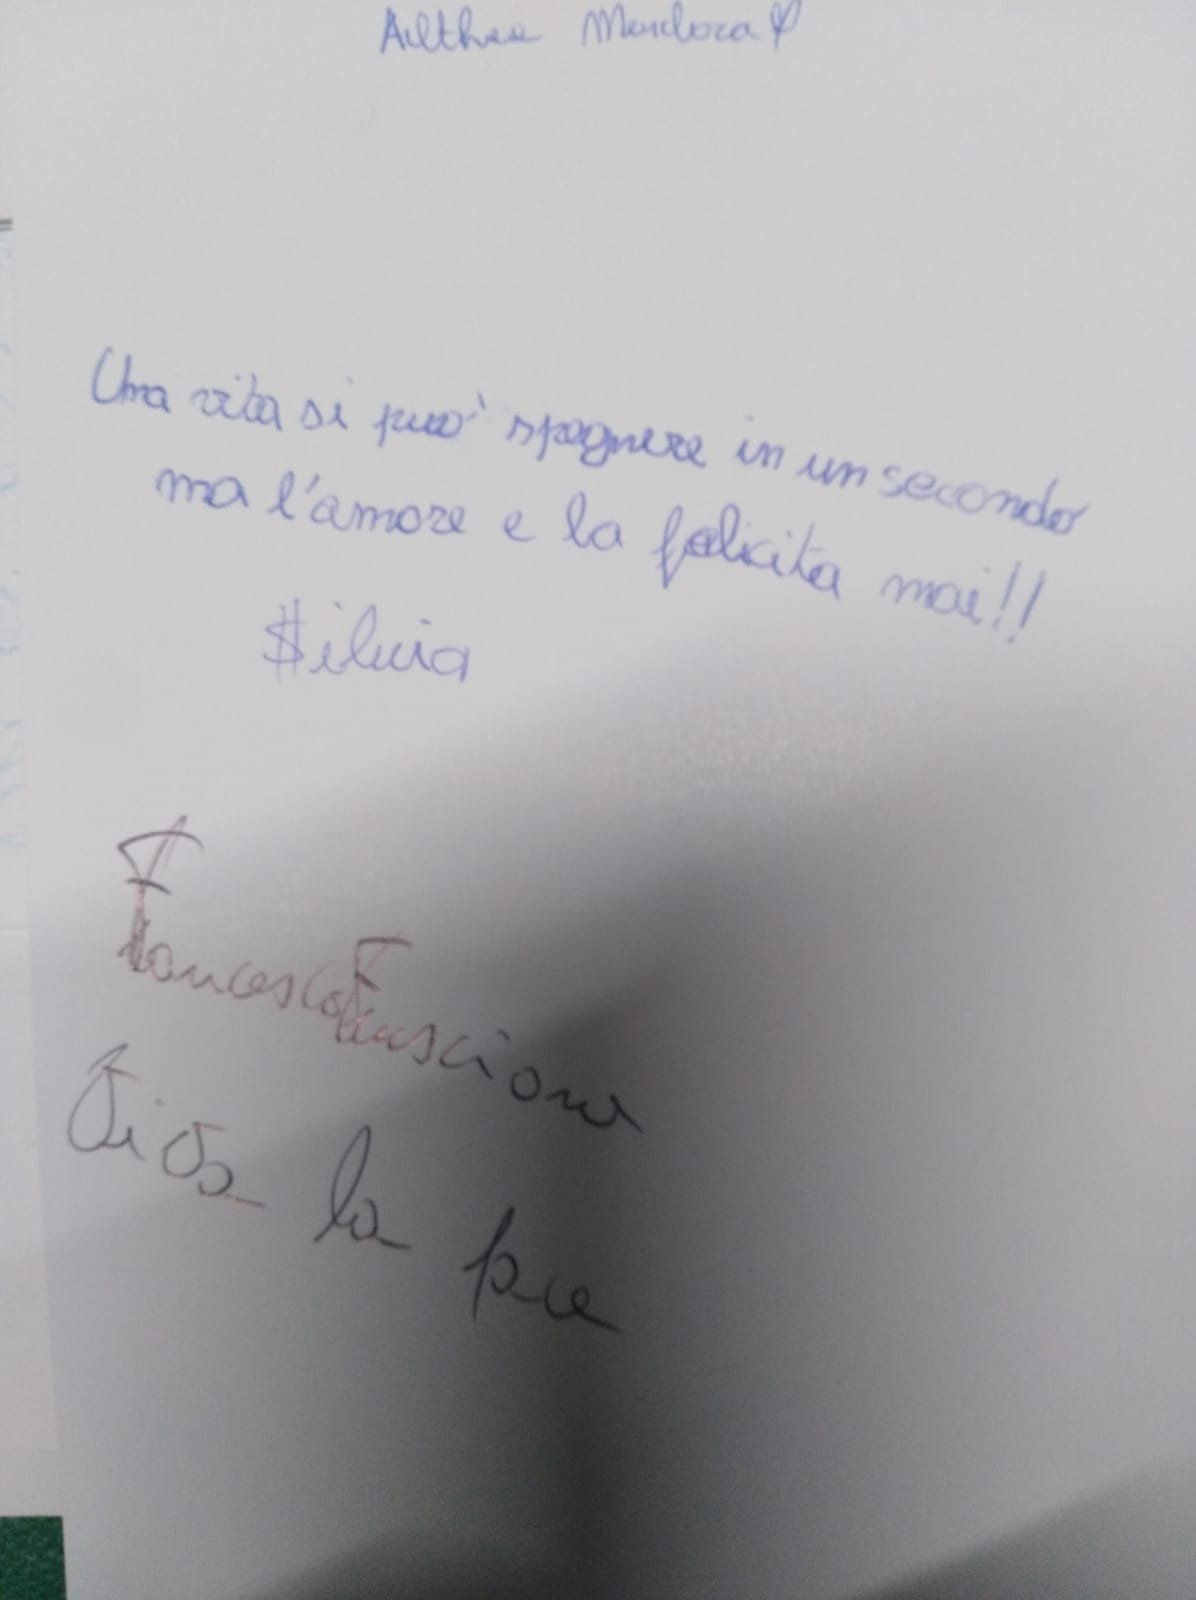 Ailthea Mendoza
Una vita si può spegnere in un secondo
ma l'amore e la felicita mai!!
$ilvia
Francesco Fuscione
Viva la